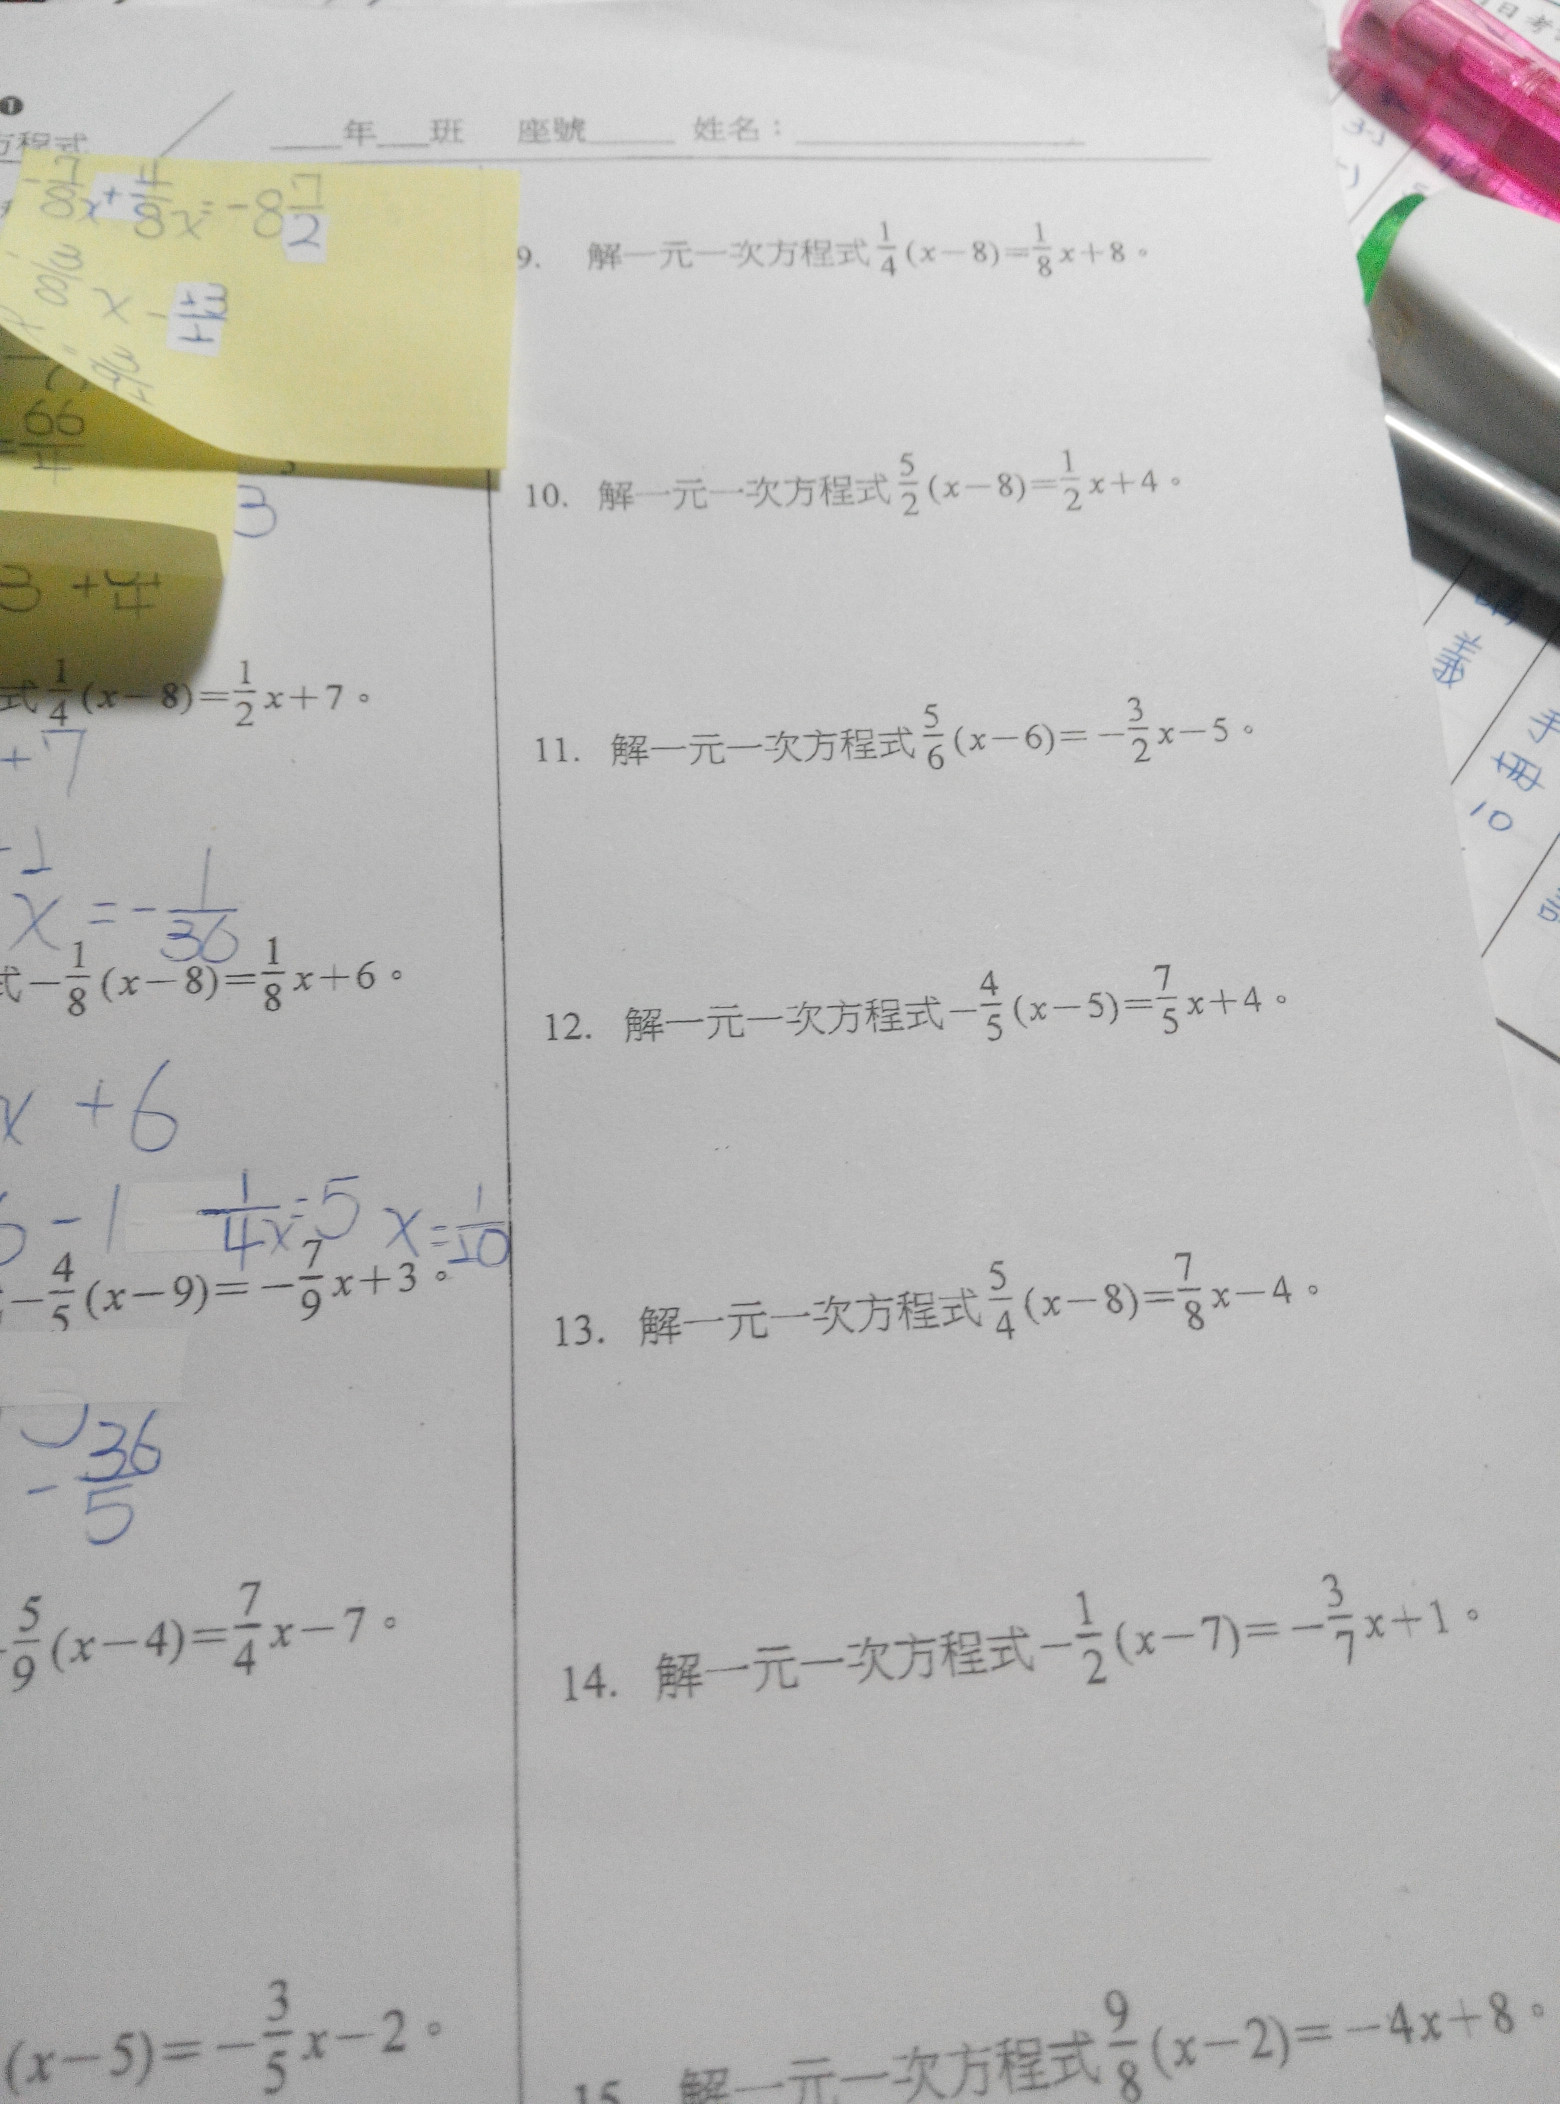 年 班 座號 姓名：
方程式
x+4/8x=-8 7/2
66/4
3
3 +
式1/4(x-8)=1/2x+7。
+7
x=-1/36
式-1/8(x-8)=1/8x+6。
x+6
-1 1/4x=5 x=1/20
-4/5(x-9)=-7/9x+3。
-36/5
5/9(x-4)=7/4x-7。
(x-5)=-3/5x-2。
9. 解一元一次方程式1/4(x-8)=1/8x+8。
10. 解一元一次方程式5/2(x-8)=1/2x+4。
11. 解一元一次方程式5/6(x-6)=-3/2x-5。
12. 解一元一次方程式-4/5(x-5)=7/5x+4。
13. 解一元一次方程式5/4(x-8)=7/8x-4。
14. 解一元一次方程式-1/2(x-7)=-3/7x+1。
15. 解一元一次方程式9/8(x-2)=-4x+8。
10